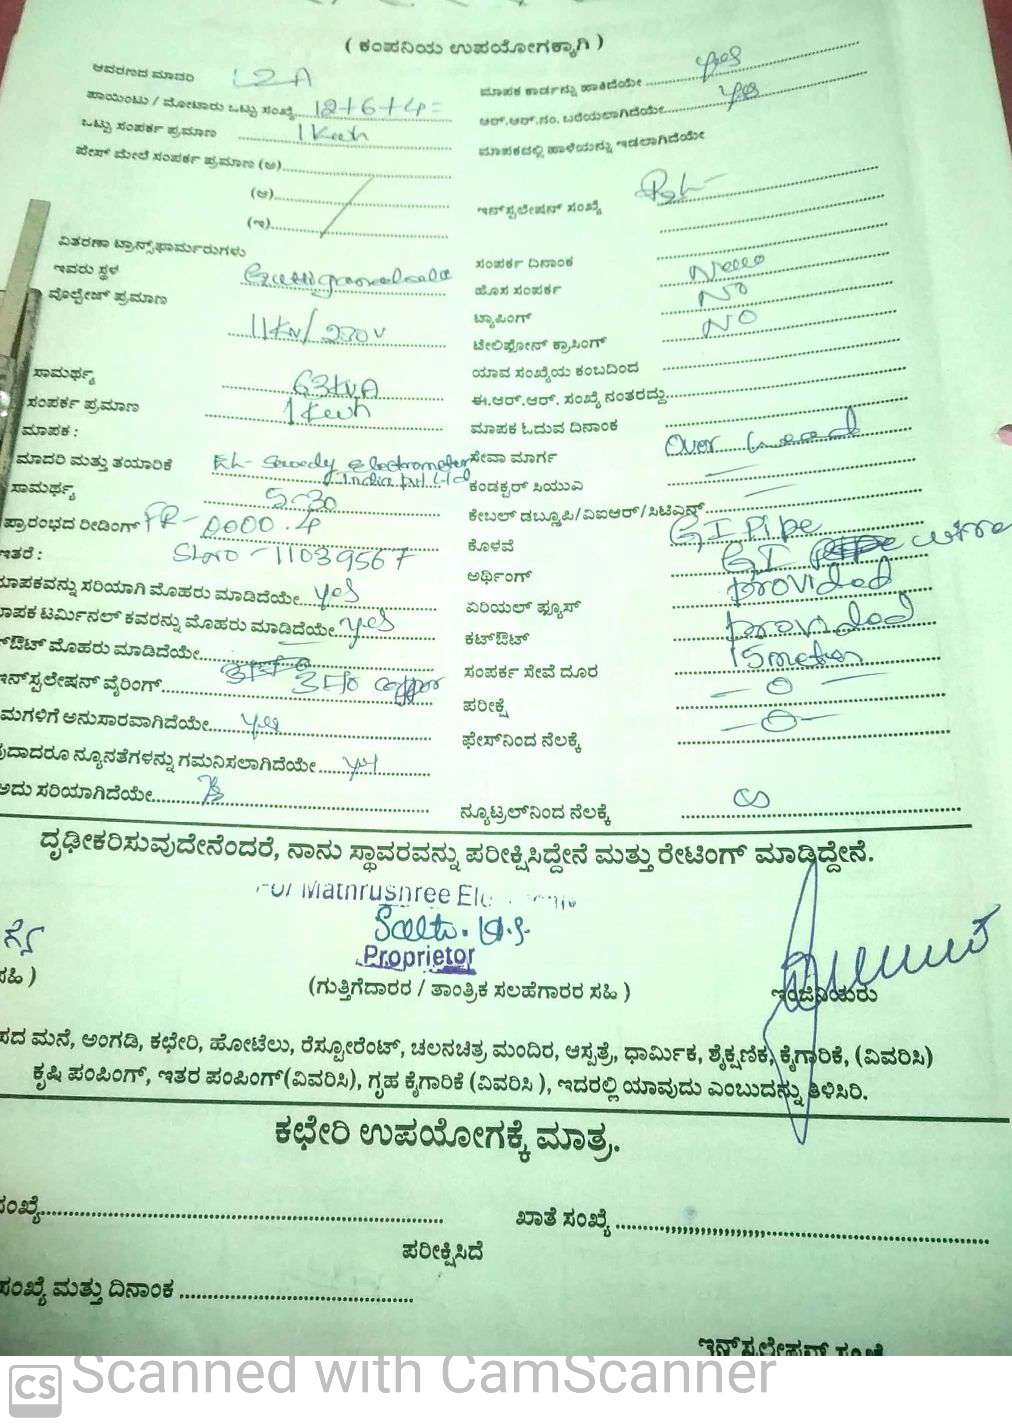 ( ಕಂಪನಿಯ ಉಪಯೋಗಕ್ಕಾಗಿ )
ಆವರಣದ ಮಾದರಿ LZA
ಮಾಪಕ ಕಾರ್ಡನ್ನು ಹಾಕಿದೆಯೇ yes
ಪಾಯಿಂಟು / ಮೋಟಾರು ಒಟ್ಟು ಸಂಖ್ಯೆ 12+6+4=
ಆರ್.ಆರ್.ನಂ. ಬರೆಯಲಾಗಿದೆಯೇ yes
ಒಟ್ಟು ಸಂಪರ್ಕ ಪ್ರಮಾಣ 1
ಮಾಪಕದಲ್ಲಿ ಹಾಳೆಯನ್ನು ಇಡಲಾಗಿದೆಯೇ
ಫೇಸ್ ಮೇಲೆ ಸಂಪರ್ಕ ಪ್ರಮಾಣ (ಅ)
(ಆ)
ಇನ್‌ಸ್ಟಲೇಷನ್ ಸಂಖ್ಯೆ
(ಇ)
ವಿತರಣಾ ಟ್ರಾನ್ಸ್‌ಫಾರ್ಮರುಗಳು
ಸಂಪರ್ಕ ದಿನಾಂಕ
ಇವರು ಸ್ಥಳ
ಹೊಸ ಸಂಪರ್ಕ NO
ವೊಲ್ಟೇಜ್ ಪ್ರಮಾಣ 11KV/230V
ಟ್ಯಾಪಿಂಗ್ NO
ಟೇಲಿಫೋನ್ ಕ್ರಾಸಿಂಗ್
ಸಾಮರ್ಥ್ಯ 63KVA
ಯಾವ ಸಂಖ್ಯೆಯ ಕಂಬದಿಂದ
ಸಂಪರ್ಕ ಪ್ರಮಾಣ 1
ಈ.ಆರ್.ಆರ್. ಸಂಖ್ಯೆ ನಂತರದ್ದು
ಮಾಪಕ :
ಮಾಪಕ ಓದುವ ದಿನಾಂಕ
ಮಾದರಿ ಮತ್ತು ತಯಾರಿಕೆ EL- Sewedy electrometer India pvt Ltd
ಸೇವಾ ಮಾರ್ಗ Over head
ಸಾಮರ್ಥ್ಯ 5-30
ಕಂಡಕ್ಟರ್ ಸಿಯುವಿ
ಪ್ರಾರಂಭದ ರೀಡಿಂಗ್ FR- 0000.4
ಕೇಬಲ್ ಡಬ್ಲ್ಯೂಪಿ/ವಿಐಆರ್/ಸಿಟಿಎಸ್
ಇತರೆ : Slno - 11039567
ಕೊಳವೆ GI Pipe
ಮಾಪಕವನ್ನು ಸರಿಯಾಗಿ ಮೊಹರು ಮಾಡಿದೆಯೇ yes
ಅರ್ಥಿಂಗ್ GI wire
ಮಾಪಕ ಟರ್ಮಿನಲ್ ಕವರನ್ನು ಮೊಹರು ಮಾಡಿದೆಯೇ yes
ಏರಿಯಲ್ ಫ್ಯೂಸ್ provided
ಕಟ್‌ಔಟ್ ಮೊಹರು ಮಾಡಿದೆಯೇ
ಕಟ್‌ಔಟ್ provided
ಇನ್‌ಸ್ಟಲೇಷನ್ ವೈರಿಂಗ್ copper
ಸಂಪರ್ಕ ಸೇವೆ ದೂರ 15 meter
ಮಗಳಿಗೆ ಅನುಸಾರವಾಗಿದೆಯೇ yes
ಪರೀಕ್ಷೆ — 0 —
ವುದಾದರೂ ನ್ಯೂನತೆಗಳನ್ನು ಗಮನಿಸಲಾಗಿದೆಯೇ yes
ಫೇಸ್‌ನಿಂದ ನೆಲಕ್ಕೆ — 0 —
ಅದು ಸರಿಯಾಗಿದೆಯೇ
ನ್ಯೂಟ್ರಲ್‌ನಿಂದ ನೆಲಕ್ಕೆ ∞
ದೃಢೀಕರಿಸುವುದೇನೆಂದರೆ, ನಾನು ಸ್ಥಾವರವನ್ನು ಪರೀಕ್ಷಿಸಿದ್ದೇನೆ ಮತ್ತು ರೇಟಿಂಗ್ ಮಾಡಿದ್ದೇನೆ.
For Mathrushree
Proprietor
ಸಹಿ )
(ಗುತ್ತಿಗೆದಾರರ / ತಾಂತ್ರಿಕ ಸಲಹೆಗಾರರ ಸಹಿ )
ಇಂಜಿನಿಯರು
ಸದ ಮನೆ, ಅಂಗಡಿ, ಕಛೇರಿ, ಹೋಟೆಲು, ರೆಸ್ಟೋರೆಂಟ್, ಚಲನಚಿತ್ರ ಮಂದಿರ, ಆಸ್ಪತ್ರೆ, ಧಾರ್ಮಿಕ, ಶೈಕ್ಷಣಿಕ, ಕೈಗಾರಿಕೆ, (ವಿವರಿಸಿ)
ಕೃಷಿ ಪಂಪಿಂಗ್, ಇತರ ಪಂಪಿಂಗ್(ವಿವರಿಸಿ), ಗೃಹ ಕೈಗಾರಿಕೆ (ವಿವರಿಸಿ ), ಇದರಲ್ಲಿ ಯಾವುದು ಎಂಬುದನ್ನು ತಿಳಿಸಿರಿ.
ಕಛೇರಿ ಉಪಯೋಗಕ್ಕೆ ಮಾತ್ರ.
ಸಂಖ್ಯೆ
ಖಾತೆ ಸಂಖ್ಯೆ
ಪರೀಕ್ಷಿಸಿದೆ
ಸಂಖ್ಯೆ ಮತ್ತು ದಿನಾಂಕ
ಇನ್‌ಸ್ಟಲೇಷನ್ ಸಂಖ್ಯೆ
CS Scanned with CamScanner